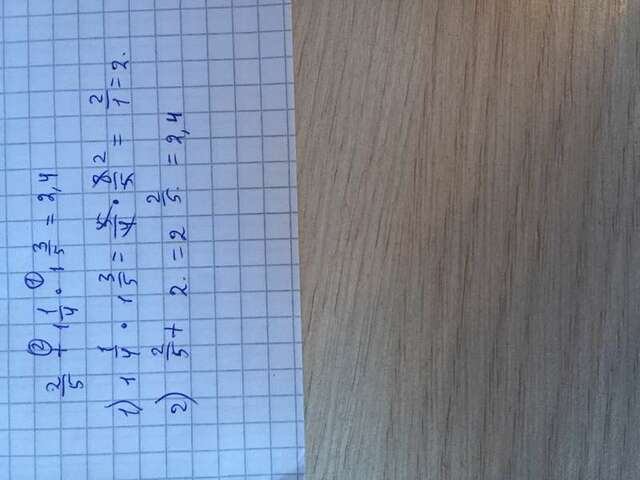 2/5 + ② 1 1/4 · ① 1 3/5 = 2,4
1) 1 1/4 · 1 3/5 = 5/4 · 8/5 ² = 2/1 = 2.
2) 2/5 + 2. = 2 2/5. = 2,4